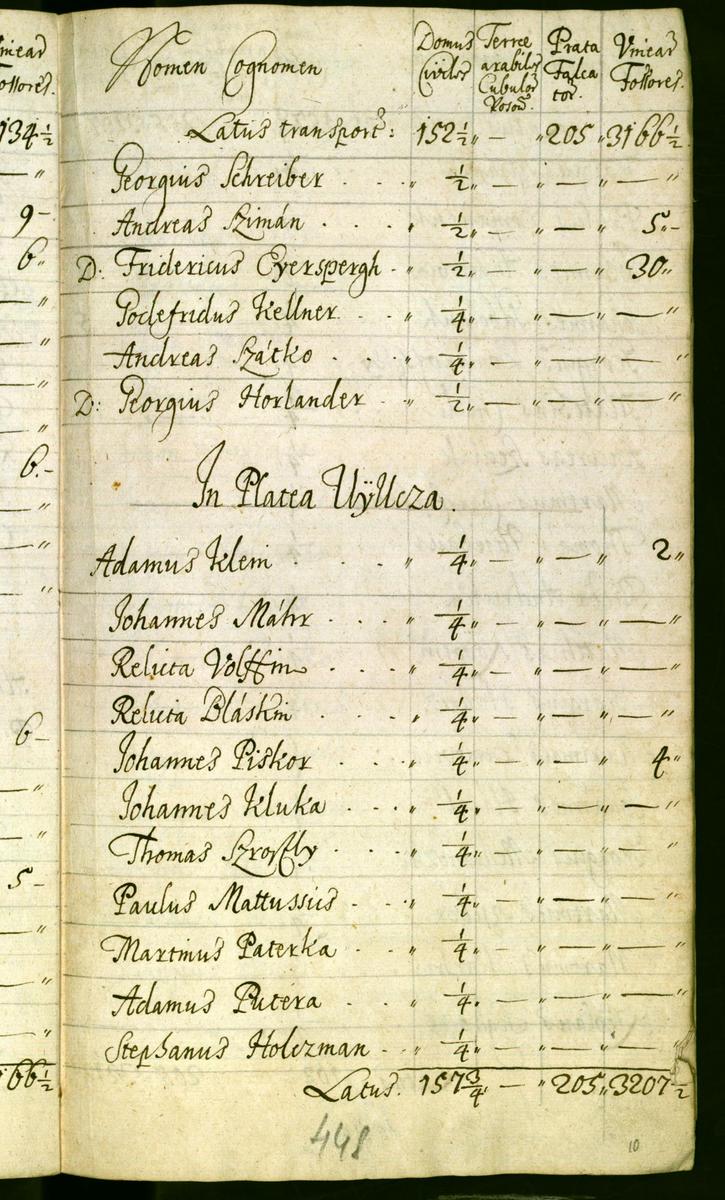 Nomen Cognomen Domus Civiles Terræ arabiles Cubulor Poson Prata Falcator Vinear Fossores
Latus transport: 152 1/2 „ — „ 205 „ 3166 1/2
Georgius Schreiber . . . „ 1/2 „ — „ — „ — „
Andreas Szimán . . . . „ 1/2 „ — „ — „ 5 „ -
D: Fridericus Eyerspergh . „ 1/2 „ — „ — „ 30 „
Godefridus Kellner . . . „ 1/4 „ — „ — „ — „
Andreas Szátko . . . „ 1/4 „ — „ — „ — „
D: Georgius Horlander . . „ 1/2 „ — „ — „ — „
In Platea Uÿllcza .
Adamus Klein . . . „ 1/4 „ — „ — „ 2 „
Johannes Máhr . . . . „ 1/4 „ — „ — „ — „
Relicta Volffin . . . „ 1/4 „ — „ — „ — „
Relicta Bláskin . . . . „ 1/4 „ — „ — „ — „
Johannes Piskor . . . „ 1/4 „ — „ — „ 4 „
Johannes Kluka . . . „ 1/4 „ — „ — „ — „
Thomas . . . „ 1/4 „ — „ — „ — „
Paulus Mattussics . . . „ 1/4 „ — „ — „ — „
Martinus Paterka . . . „ 1/4 „ — „ — „ — „
Adamus Putera . . . „ 1/4 „ — „ — „ — „
Stephanus Holczman . . . „ 1/4 „ — „ — „ — „
Latus . 157 3/4 — „ 205 „ 3207 1/2
448
10